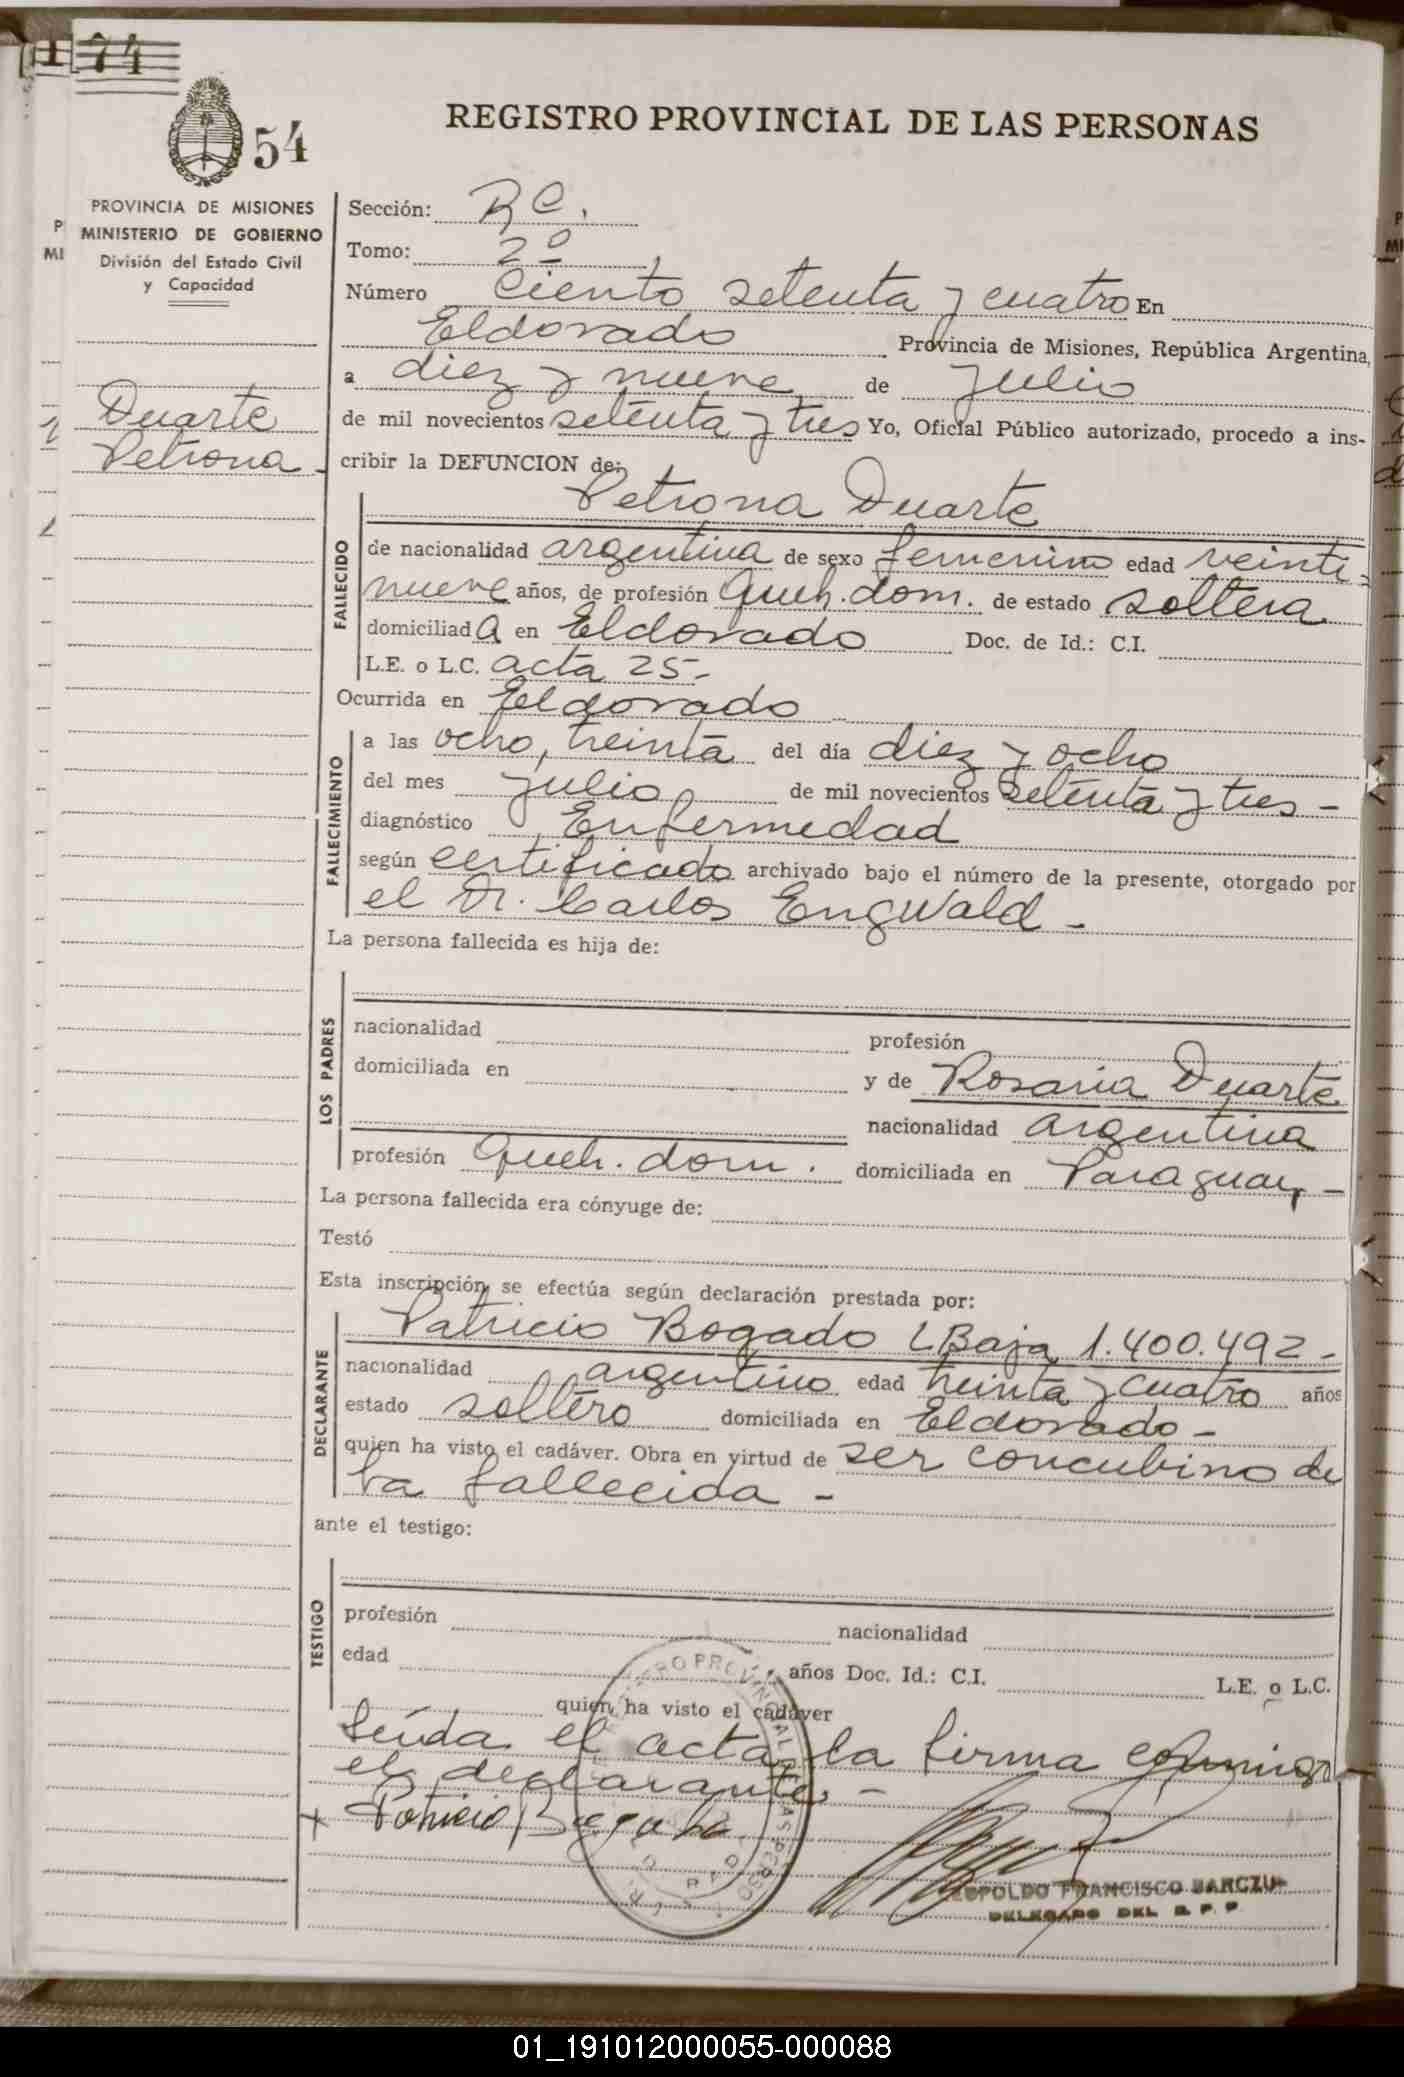 174
54
REGISTRO PROVINCIAL DE LAS PERSONAS
PROVINCIA DE MISIONES
MINISTERIO DE GOBIERNO
División del Estado Civil
y Capacidad
Duarte
Petrona -
Sección: R C.
Tomo: 2º
Número Ciento setenta y cuatro En
Eldorado Provincia de Misiones, República Argentina,
a diez y nueve de Julio
de mil novecientos setenta y tres Yo, Oficial Público autorizado, procedo a ins-
cribir la DEFUNCION de:
Petrona Duarte
FALLECIDO
de nacionalidad argentina de sexo femenino edad veinti=
nueve años, de profesión Queh. dom. de estado soltera
domiciliada en Eldorado Doc. de Id.: C.I.
L.E. o L.C. acta 25-
Ocurrida en Eldorado
FALLECIMIENTO
a las ocho, treinta del día diez y ocho
del mes Julio de mil novecientos setenta y tres -
diagnóstico Enfermedad
según certificado archivado bajo el número de la presente, otorgado por
el Dr. Carlos Engwald -
La persona fallecida es hija de:
LOS PADRES
nacionalidad profesión
domiciliada en y de Rosaria Duarte
nacionalidad argentina
profesión Queh. dom. domiciliada en Paraguay -
La persona fallecida era cónyuge de:
Testó
Esta inscripción se efectúa según declaración prestada por:
DECLARANTE
Patricio Bogado L Baja 1.400.492 -
nacionalidad argentino edad treinta y cuatro años
estado soltero domiciliada en Eldorado -
quien ha visto el cadáver. Obra en virtud de ser concubino de
la fallecida -
ante el testigo:
TESTIGO
profesión nacionalidad
edad años Doc. Id.: C.I. L.E. o L.C.
quien ha visto el cadáver
Leída el acta, la firma conmigo
el declarante -
Patricio Bogado
LEOPOLDO FRANCISCO BARCZUK
DELEGADO DEL R. P. P.
01_191012000055-000088